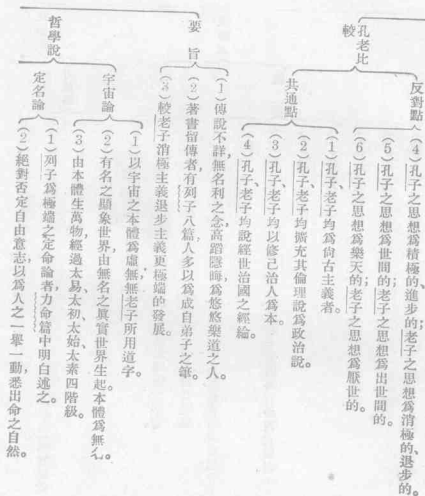 孔老比較
反對點
（4）孔子之思想爲積極的、進步的；老子之思想爲消極的、退步的。
（5）孔子之思想爲世間的；老子之思想爲出世間的。
（6）孔子之思想爲樂天的；老子之思想爲厭世的。
共通點
（1）孔子、老子均爲尙古主義者。
（2）孔子、老子均擴充其倫理說爲政治說。
（3）孔子、老子均以修己治人爲本。
（4）孔子、老子均說經世治國之經綸。
要旨
（1）傳說不詳，無名利之念，高蹈隱晦，爲悠悠樂道之人。
（2）著書留傳者有列子八篇，人多以爲成自弟子之筆。
（3）較老子消極主義退步主義更極端的發展。
哲學說
宇宙論
（1）以宇宙之本體爲虛無，無老子所用道字。
（2）有名之顯象世界，由無名之眞實世界生起，本體爲無。
（3）由本體生萬物，經過太易、太初、太始、太素四階級。
定名論
（1）列子爲極端之定命論者，力命篇中明白述之。
（2）絕對否定自由意志，以爲人之一舉一動，悉出命之自然。